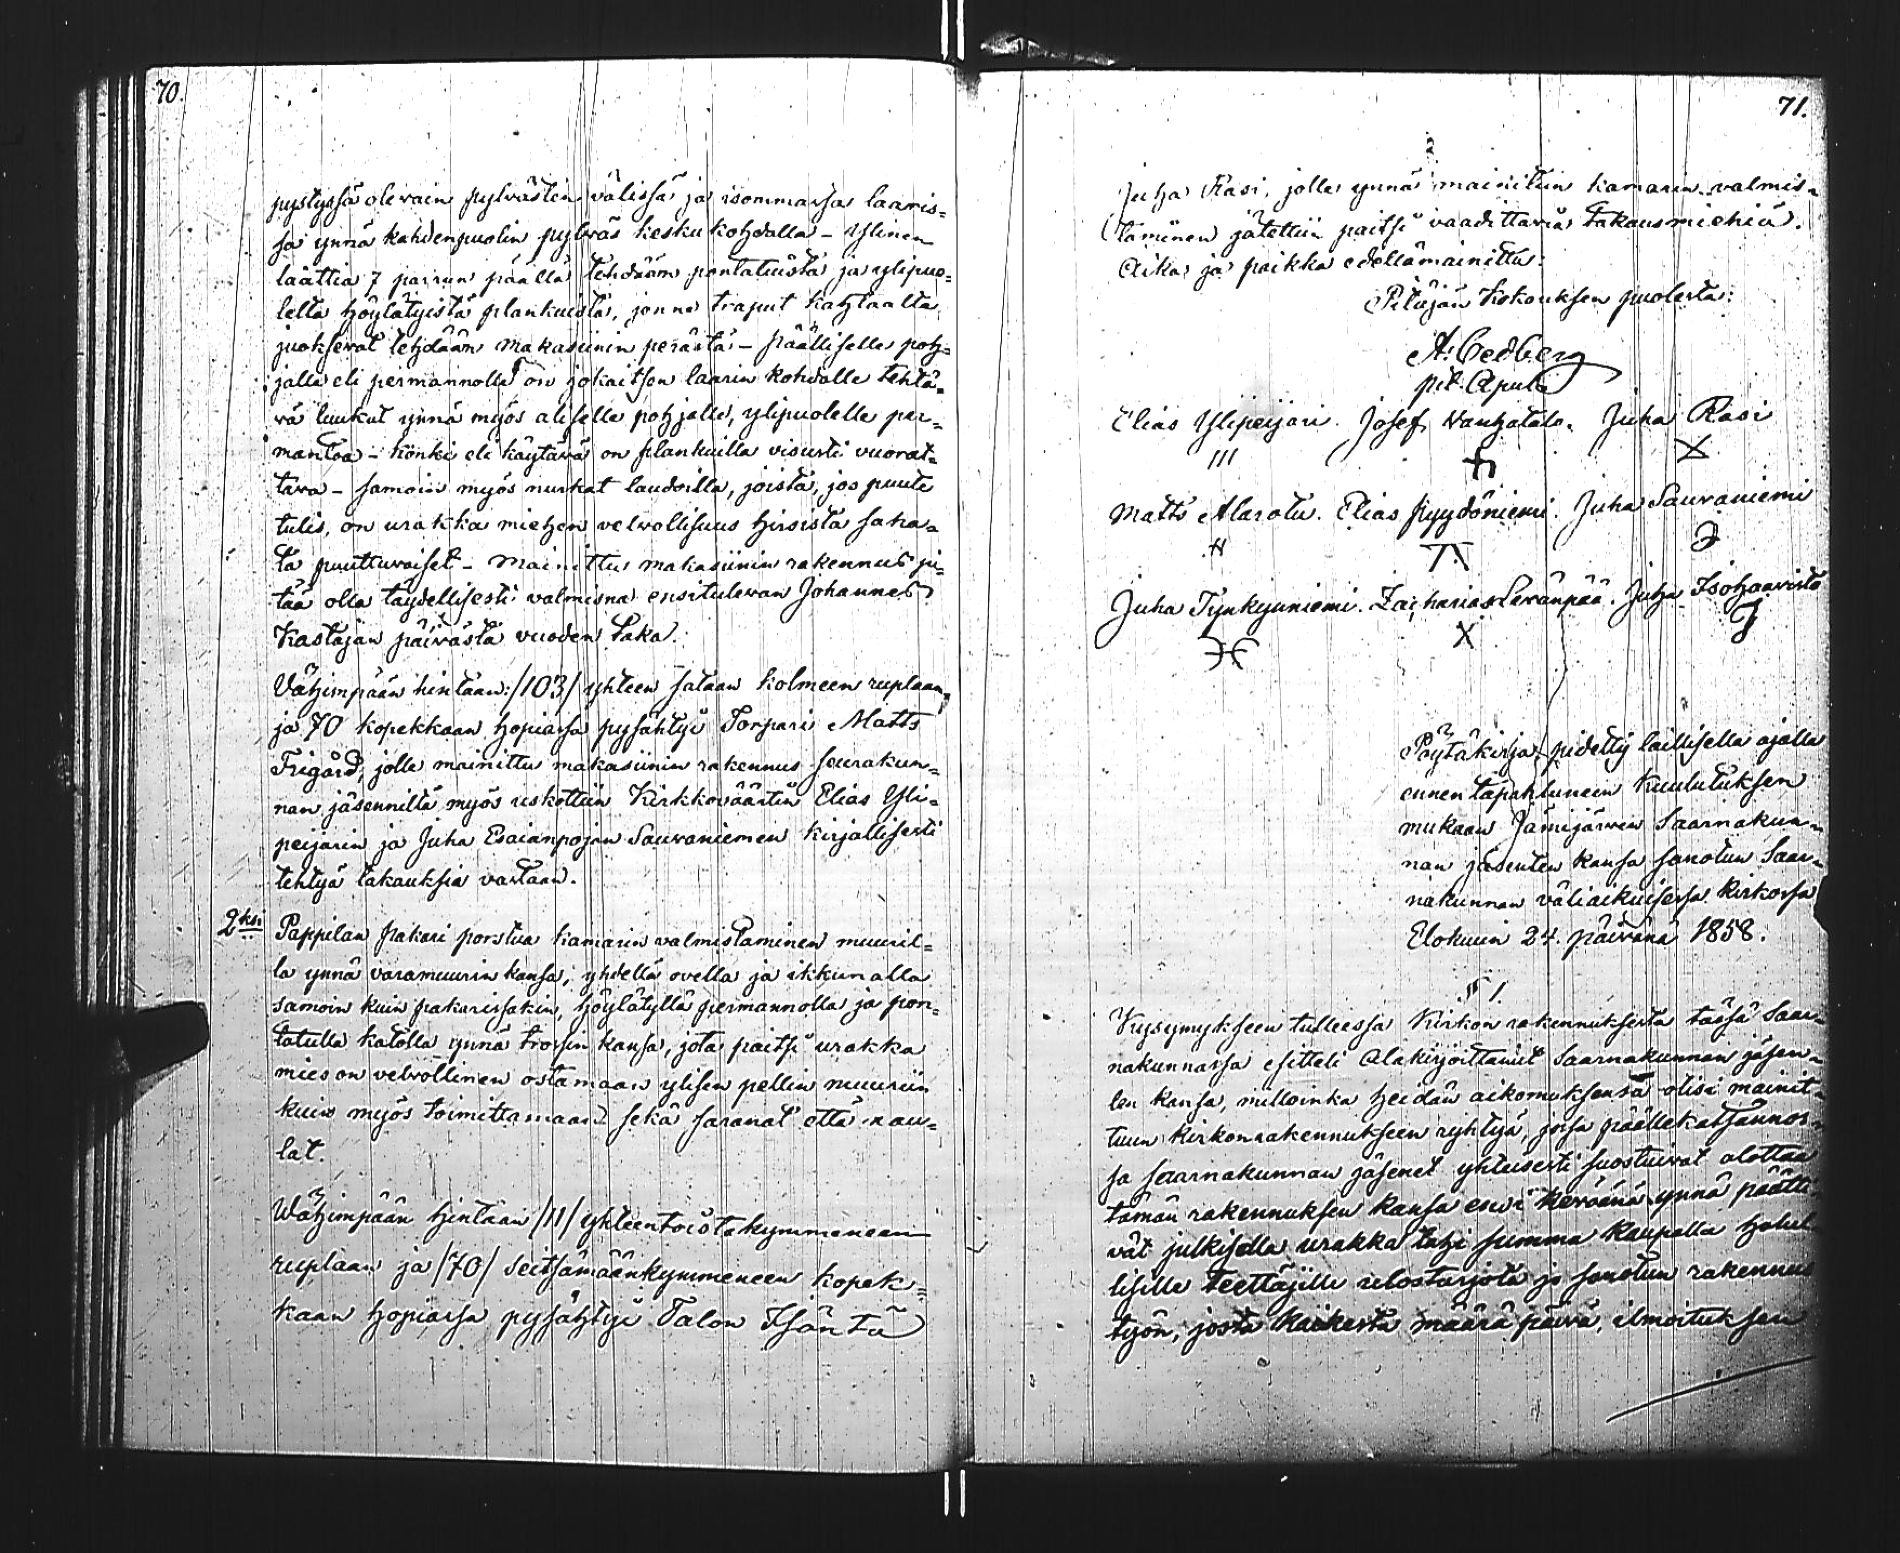 70.
pystyssä olevain pylvästen välissä ja isommassa laaris=
sa ynnä kahdenpuolin pylväs keskukohdalla - Ylinen
laattia 7 parrun päällä tehdään pontatuista ja ylipuo=
lelta höylätyistä plankuista, jonne traput kahtaalta
juoksevat tehdään makasiinin perästä - Päälliselle poh=
jalle eli permannolle on jokaitsen laarin kohdalle tehtä=
vä luukut ynnä myös aliselle pohjalle, ylipuolelle per=
mantoa - Könki eli käytävä on plankuilla visusti vuorat=
tava - samoin myös nurkat laudoilla, joista, jos puute
tulis, on urakka miehen velvollisuus hirsistä saha=
ta puuttuvaiset - Mainittu makasiinin rakennus pi=
tää olla täydellisesti valmisna ensitulevan Johannes
Kastajan päivästä vuoden taka.
Vähimpään hintaan: /103/ yhteen sataan kolmeen ruplaan,
ja 70 kopekkaan hopiassa pysähtyi Torpari Matts
Frigård, jolle mainittu makasiinin rakennus seurakun=
nan jäsenniltä myös uskottiin Kirkkoväärtin Elias Yli=
peijarin ja Juha Esaianpojan Sauvaniemen kirjallisesti
tehtyä takauksia vastaan.
2ksi Pappilan pakari porstua kamarin valmistaminen muuril=
la ynnä varamuurin kansa, yhdellä ovella ja ikkunalla
samoin kuin pakarissakin, höylätyllä permannolla ja pon=
tatulla katolla ynnä trossin kansa, jota paitsi urakka
mies on velvollinen ostamaan ylisen pellin muuriin
kuin myös toimittamaan sekä saranat että nau=
lat.
Wähimpään hintaan /11/ yhteentoistakymmeneen
ruplaan ja /70/ seitsämäänkymmeneen kopek=
kaan hopiassa pysähtyi Talon Isäntä
71.
Juha Räsi, jolle ynnä mainitun kamarin valmis=
taminen jätettiin paitsi vaadittavia Takausmiehiä.
Aika ja paikka edellämainittu:
Pitäjän Kokouksen puolesta:
A. Cedberg
pit. Apul.
Elias Ylipeijari. Josef Wanhatalo. Juha Räsi
III X
Matts Alarotu. Elias Pyydöniemi. Juha Sauvaniemi
Juha Tynkyuniemi. Zacharias Peränpää. Juha Isohaavisto
X
Pöytäkirja, pidetty laillisella ajalla
ennen tapahtuneen Kuulutuksen
mukaan Jämijärven Saarnakun=
nan jäsenten kansa sanotun Saar=
nakunnan väliaikuisessa Kirkossa
Elokuun 24. päivänä 1858.
§ 1.
Kysymykseen tulleessa Kirkon rakennuksesta tässä Saar=
nakunnassa esitteli Alakirjoittanut Saarnakunnan jäsen=
len kansa, milloinka heidän aikomuksensa olisi mainit=
tuun kirkonrakennukseen ryhtyä, jossa päällekatsannos=
sa saarnakunnan jäsenet yhteisesti suostuivat alottaa
tämän rakennuksen kansa ensi keväänä ynnä päätti
vät julkisella urakka tahi summa kaupalla halul
lisille teettäjille ulostarjota jo sanotun rakennus
työn, josta kaikesta määrä päivä, ilmoituksen